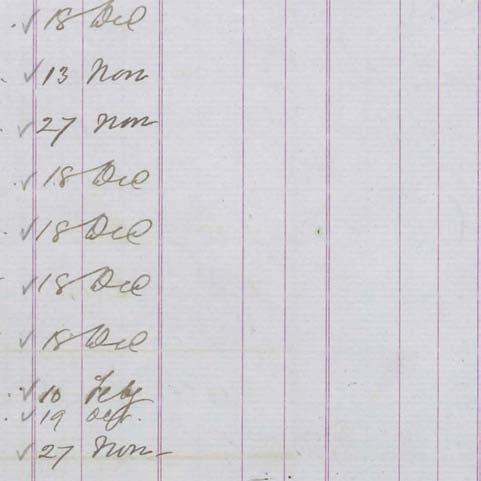 ✓ 18 Dec
✓ 13 Nov
✓ 27 Nov
✓ 18 Dec
✓ 18 Dec
✓ 18 Dec
✓ 18 Dec
✓ 10 Feby
✓ 19
✓ 27 Nov